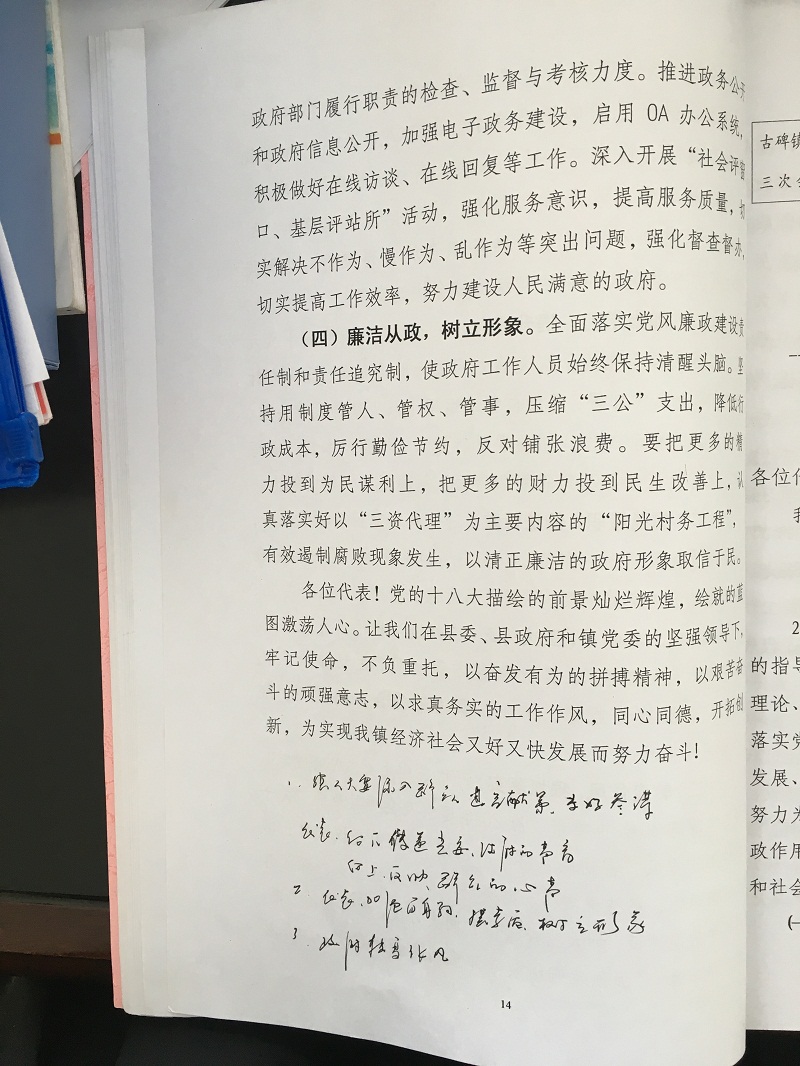 政府部门履行职责的检查、监督与考核力度。推进政务公开
和政府信息公开，加强电子政务建设，启用 OA 办公系统，
积极做好在线访谈、在线回复等工作。深入开展“社会评窗
口、基层评站所”活动，强化服务意识，提高服务质量，切
实解决不作为、慢作为、乱作为等突出问题，强化督查督办，
切实提高工作效率，努力建设人民满意的政府。
（四）廉洁从政，树立形象。全面落实党风廉政建设责
任制和责任追究制，使政府工作人员始终保持清醒头脑。坚
持用制度管人、管权、管事，压缩“三公”支出，降低行
政成本，厉行勤俭节约，反对铺张浪费。要把更多的精
力投到为民谋利上，把更多的财力投到民生改善上，认
真落实好以“三资代理”为主要内容的“阳光村务工程”，
有效遏制腐败现象发生，以清正廉洁的政府形象取信于民。
各位代表！党的十八大描绘的前景灿烂辉煌，绘就的蓝
图激荡人心。让我们在县委、县政府和镇党委的坚强领导下，
牢记使命，不负重托，以奋发有为的拼搏精神，以艰苦奋
斗的顽强意志，以求真务实的工作作风，同心同德，开拓创
新，为实现我镇经济社会又好又快发展而努力奋斗！
1. 建言献策、当好参谋
代表. 向下传递党委、政府的声音
向上、反映群众的心声
2. 代表. 树立形象
3. 政府转变作风
14
古碑镇
三次会
各位代
我
2
的指导
理论、
落实党
发展、
努力为
政作用
和社会
（一